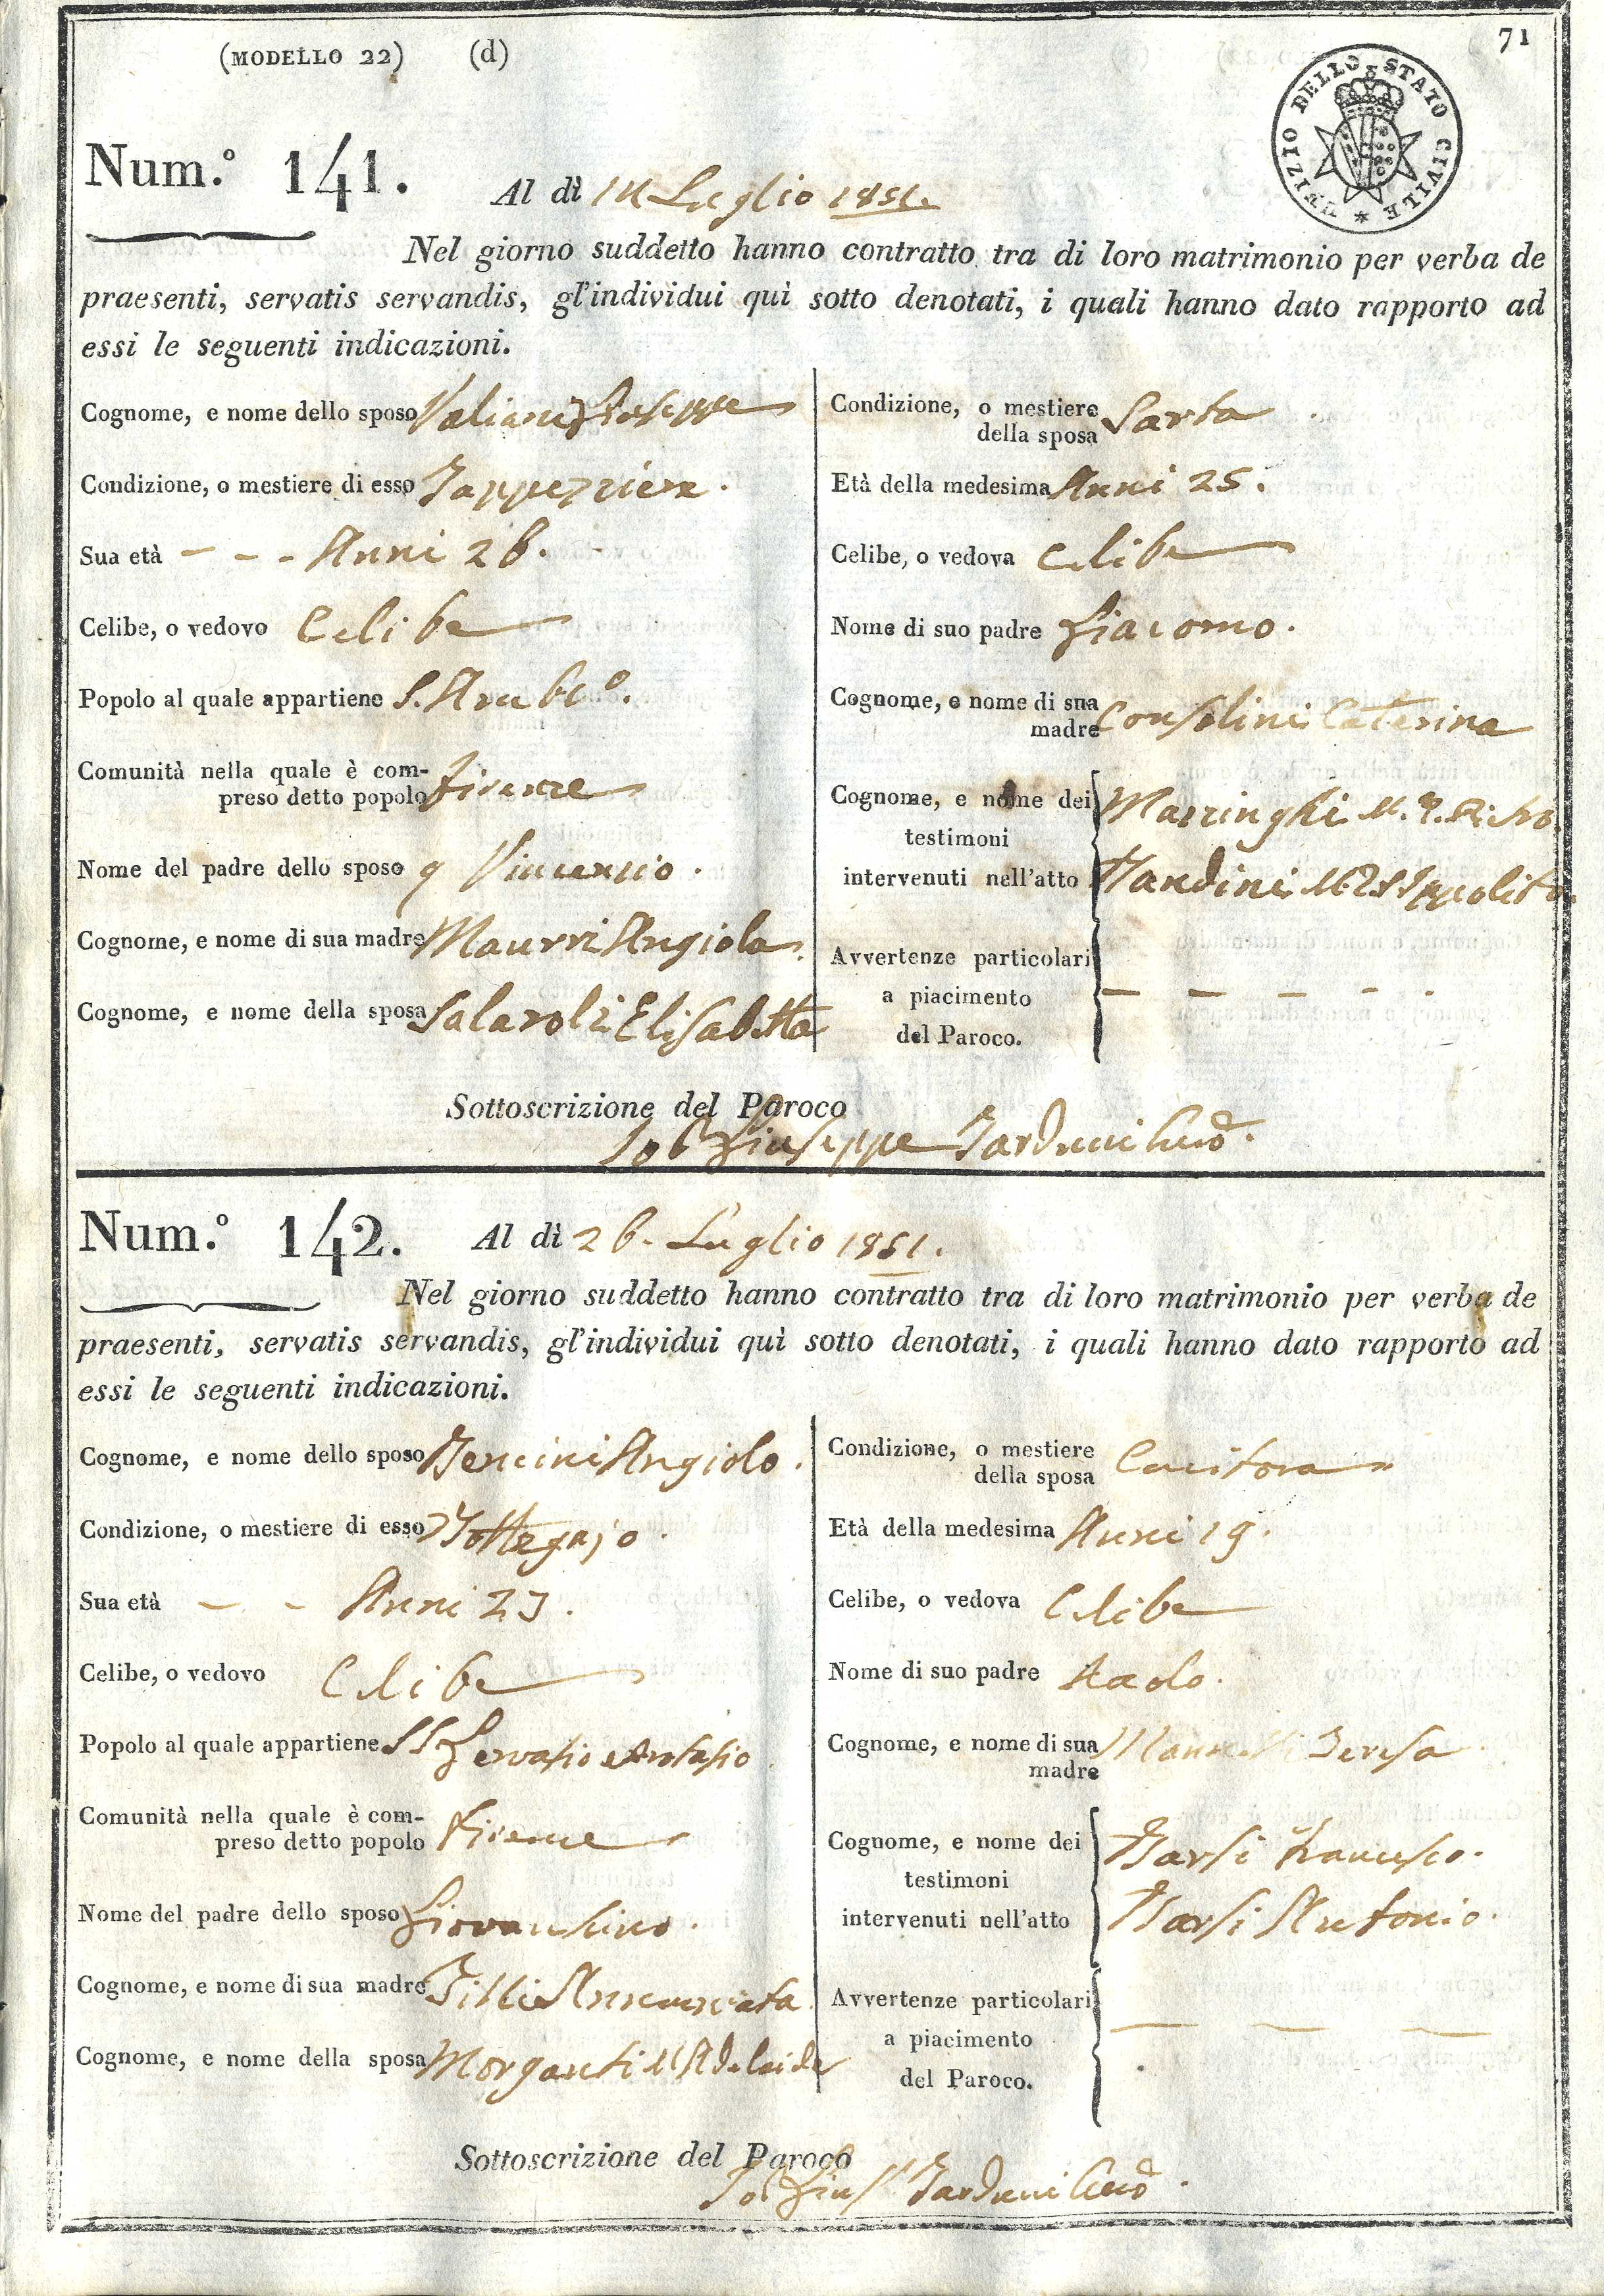 (MODELLO 22) (d)
71
UFIZIO DELLO STATO CIVILE *
Num.º 141. Al dì 14 Luglio 1851.
Nel giorno suddetto hanno contratto tra di loro matrimonio per verba de
praesenti, servatis servandis, gl'individui quì sotto denotati, i quali hanno dato rapporto ad
essi le seguenti indicazioni.
Cognome, e nome dello sposo Valiani Giuseppe
Condizione, o mestiere di esso Tappezziere.
Sua età - - - Anni 26.
Celibe, o vedovo Celibe
Popolo al quale appartiene S. Amb.º.
Comunità nella quale è com-
preso detto popolo Firenze
Nome del padre dello sposo q Vincenzio.
Cognome, e nome di sua madre Maurri Angiola.
Cognome, e nome della sposa Salaroli Elisabetta
Condizione, o mestiere
della sposa Sarta
Età della medesima Anni 25.
Celibe, o vedova Celibe
Nome di suo padre Giacomo.
Cognome, e nome di sua
madre Consolini Caterina
Cognome, e nome dei Marzinghi M. R.
testimoni
intervenuti nell'atto Nandini M. R. Ippolito.
Avvertenze particolari
a piacimento - - - - -
del Paroco.
Sottoscrizione del Paroco
Giuseppe Tarduci
Num.º 142. Al dì 26. Luglio 1851.
Nel giorno suddetto hanno contratto tra di loro matrimonio per verba de
praesenti, servatis servandis, gl'individui quì sotto denotati, i quali hanno dato rapporto ad
essi le seguenti indicazioni.
Cognome, e nome dello sposo Bencini Angiolo.
Condizione, o mestiere di esso Bottegajo.
Sua età - - Anni 23.
Celibe, o vedovo Celibe
Popolo al quale appartiene SS Gervasio e Protasio
Comunità nella quale è com-
preso detto popolo Firenze
Nome del padre dello sposo Giovacchino.
Cognome, e nome di sua madre Tilli Annunziata
Cognome, e nome della sposa Morganti M Adelaide
Condizione, o mestiere
della sposa Cucitora
Età della medesima Anni 19.
Celibe, o vedova Celibe
Nome di suo padre Paolo.
Cognome, e nome di sua
madre Teresa
Cognome, e nome dei Barsi Francesco.
testimoni
intervenuti nell'atto Barsi Antonio.
Avvertenze particolari
a piacimento
del Paroco.
Sottoscrizione del Paroco
Tarduci